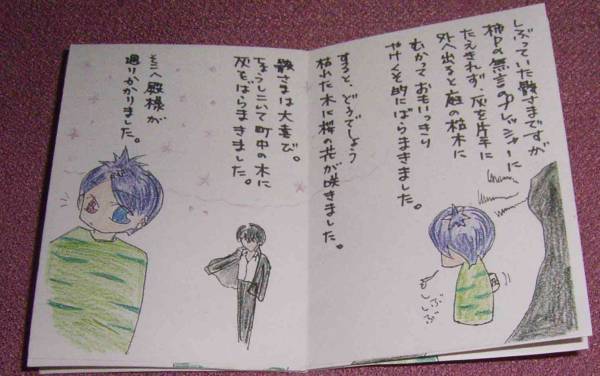 しぶっていた骸さまですが
柿Pの無言のプレッシャーに
たえきれず、灰を片手に
外へ出ると庭の枯木に
むかっておもいっきり
やけくそ的にばらまきました。
すると、どうでしょう
枯れた木に桜の花が咲きました。
しぶ
しぶ
骸さまは大喜び。
ちょうしこいて町中の木に
灰をばらまきました。
そこへ殿様が
通りかかりました。